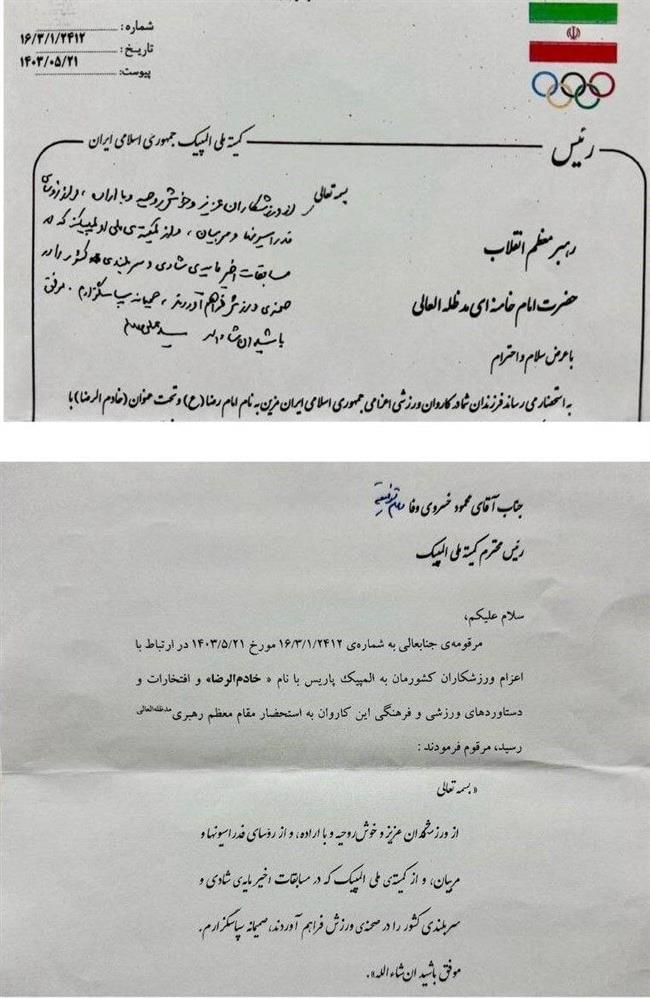 شماره: ۱۶/۳/۱/۲۴۱۲
تاریخ: ۱۴۰۳/۰۵/۲۱
پیوست:
رئیس
کمیته ملی المپیک جمهوری اسلامی ایران
رهبر معظم انقلاب
حضرت امام خامنه ای مدظله العالی
با عرض سلام و احترام
بسمه تعالی
از ورزشکاران عزیز و خوش روحیه و با اراده، و از رؤسای
فدراسیونها و مربیان، و از کمیته‌ی ملی المپیک که در
مسابقات اخیر مایه‌ی شادی و سربلندی کشور را در
صحنه‌ی ورزش فراهم آوردند، صمیمانه سپاسگزارم. موفق
باشید ان شاءالله
به استحضار می رساند فرزندان شما در کاروان ورزشی اعزامی جمهوری اسلامی ایران مزین به نام امام رضا(ع) و تحت عنوان (خادم الرضا) با
جناب آقای محمود خسروی وفا
رئیس محترم کمیته ملی المپیک
سلام علیکم،
مرقومه‌ی جنابعالی به شماره‌ی ۱۶/۳/۱/۲۴۱۲ مورخ ۱۴۰۳/۵/۲۱ در ارتباط با
اعزام ورزشکاران کشورمان به المپیک پاریس با نام « خادم‌الرضا» و افتخارات و
دستاوردهای ورزشی و فرهنگی این کاروان به استحضار مقام معظم رهبری مدظله‌العالی
رسید، مرقوم فرمودند :
« بسمه تعالی
از ورزشکاران عزیز و خوش روحیه و با اراده، و از رؤسای فدراسیونها و
مربیان، و از کمیته‌ی ملی المپیک که در مسابقات اخیر مایه‌ی شادی و
سربلندی کشور را در صحنه‌ی ورزش فراهم آوردند، صمیمانه سپاسگزارم.
موفق باشید ان شاء الله».